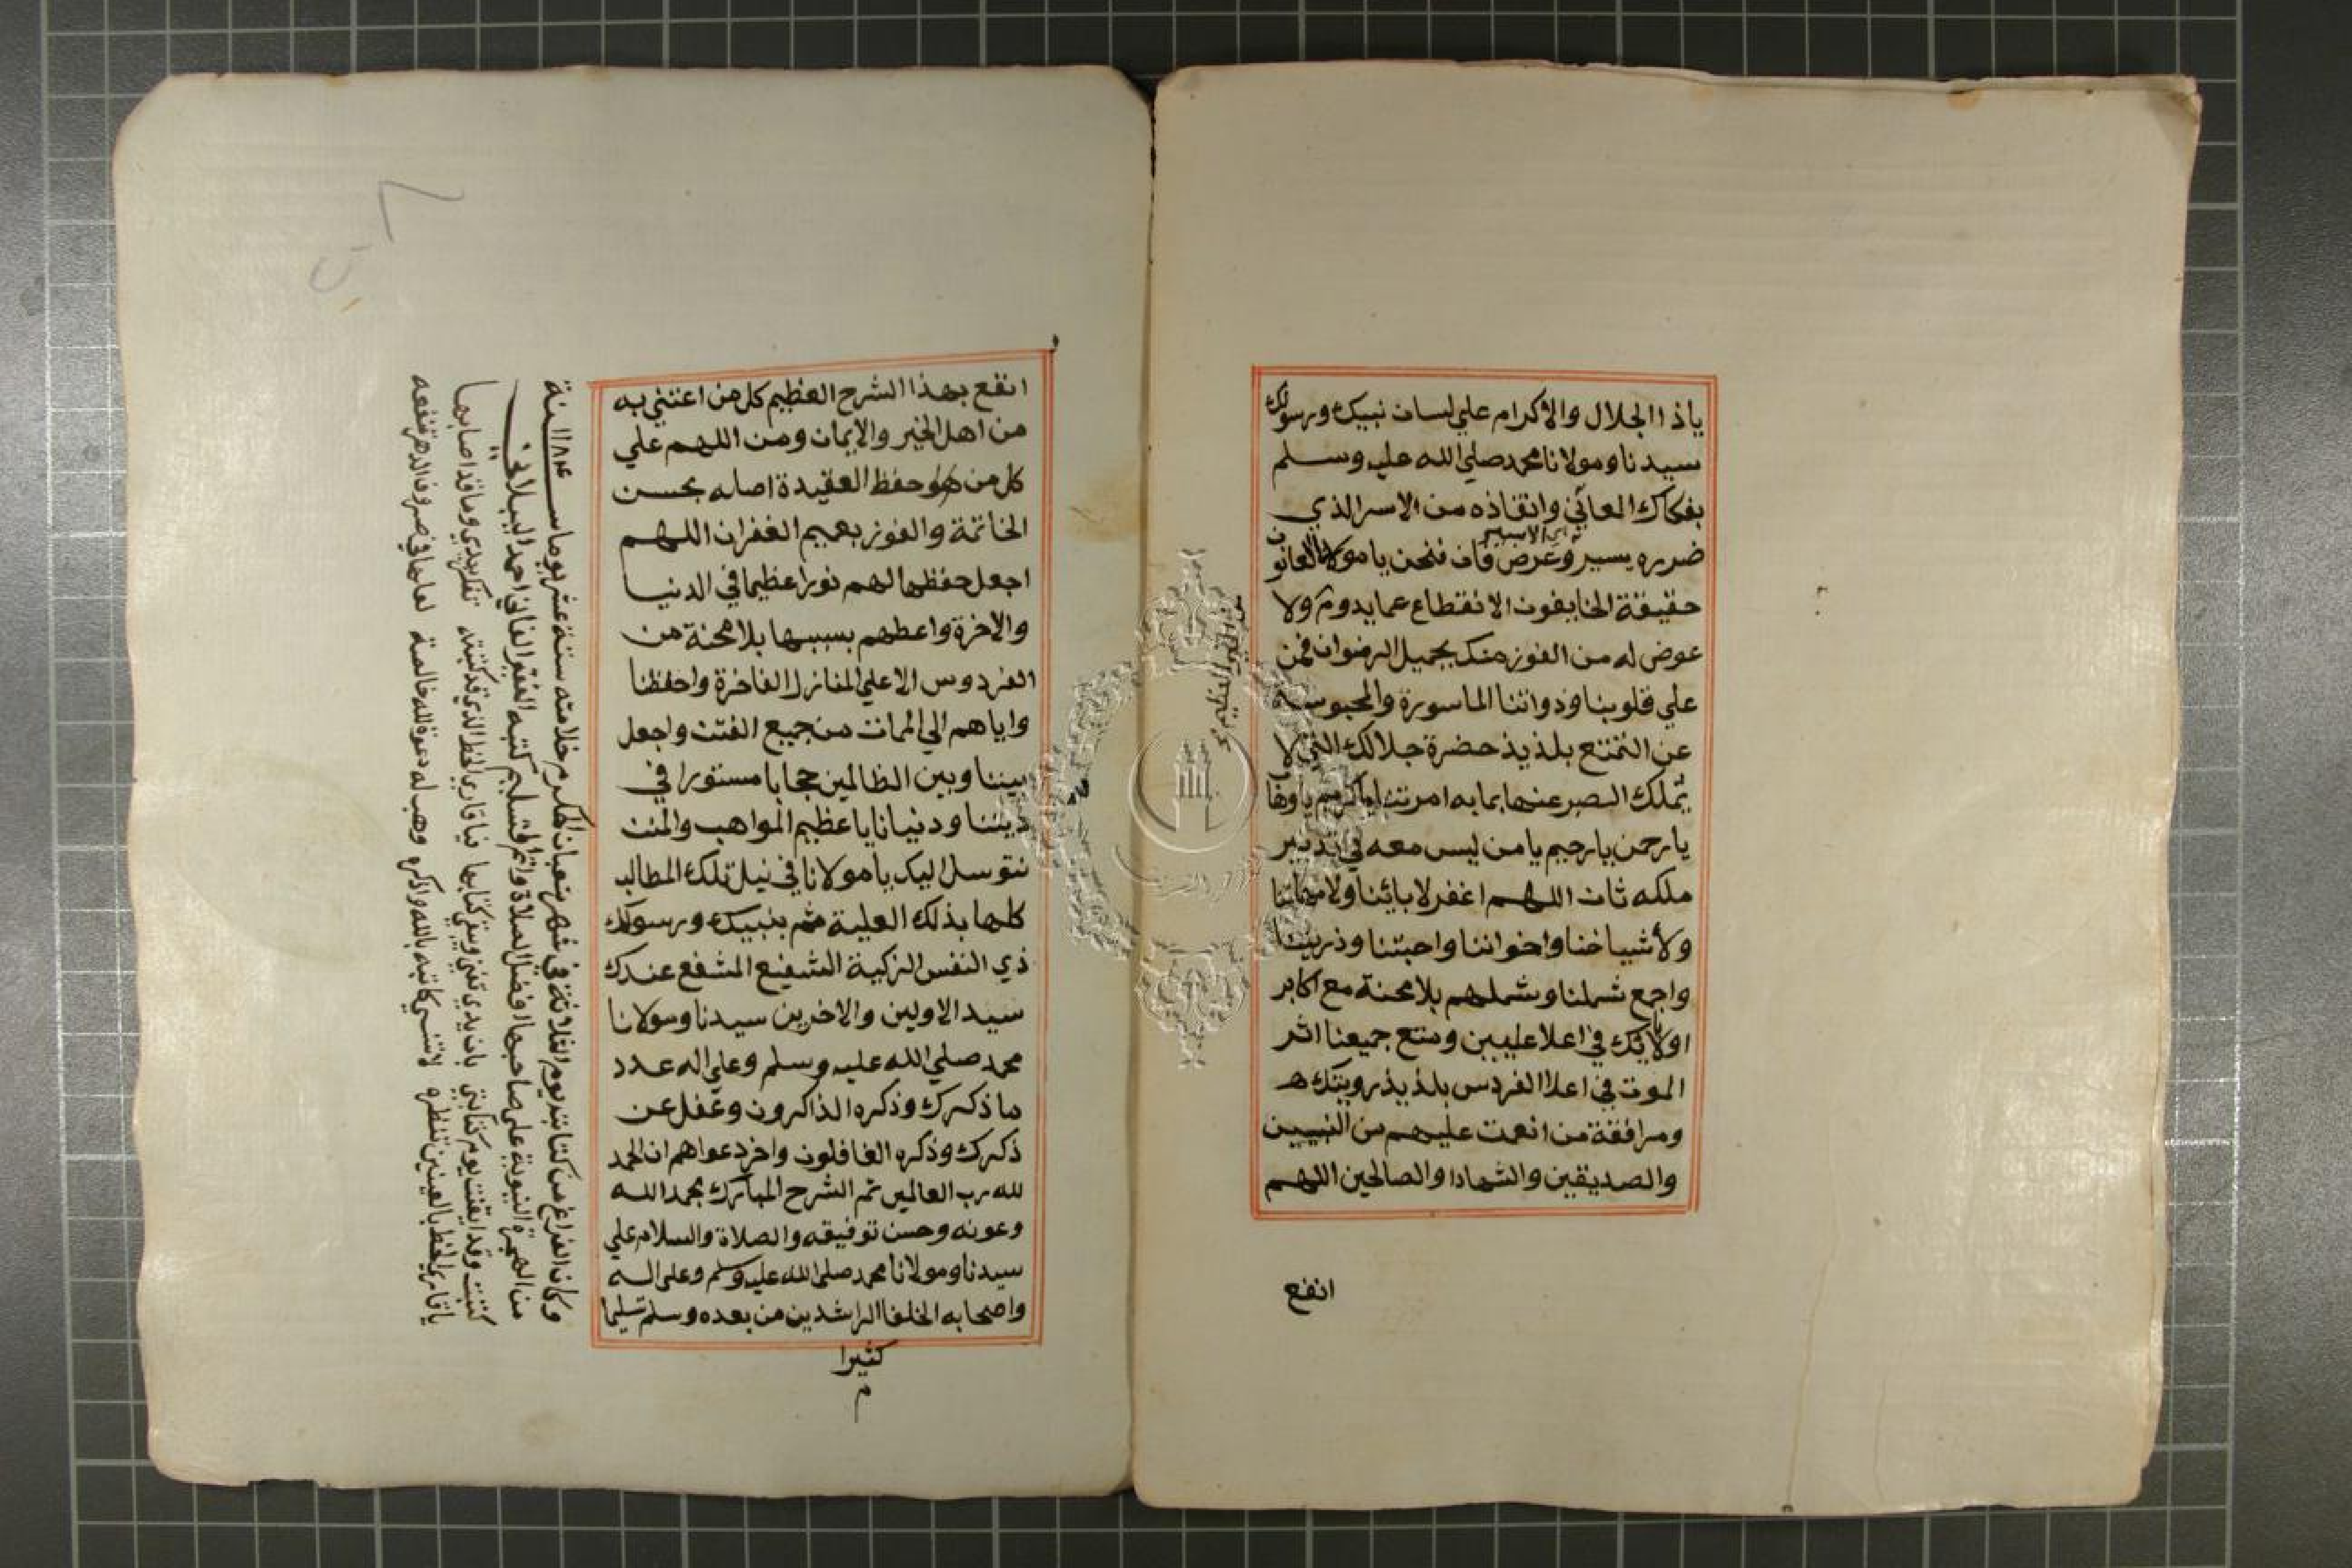 ياذا الجلال والاكرام علي لسان نبيك ورسولك
سيدنا ومولانا محمد صلي الله عليه وسلم
بفكاك العاني وانقاذه من الاسر الذي
اي الاسير
ضرره يسير وعرض فان فنحن يا مولانا العانون
حقيقة الخايفون الانقطاع عما يدوم ولا
عوض له من الفوز منك بجميل الرضوان فمن
علي قلوبنا وذواتنا الماسورة والمحبوسة
عن التمتع بلذيذ حضرة جلالك التي لا
يملك الصبر عنها بما به امرتنا يا كريم يا وهاب
يا رحمن يا رحيم يا من ليس معه في تدبير
ملكه ثان اللهم اغفر لابائنا ولامهاتنا
ولأشياخنا واخواننا واحبتنا وذريتنا
واجمع شملنا وشملهم بلا محنة مع اكابر
اوليائك في اعلا عليين ومتع جميعنا اثر
الموت في اعلا الفردس بلذيذ رويتك
ومرافقة من انعمت عليهم من النبيين
والصديقين والشهادا والصالحين اللهم
انفع
انفع بهذا الشرح العظيم كل من اعتني به
من اهل الخير والايمان ومن اللهم علي
كل من حفظ العقيدة اصله بحسن
الخاتمة والفوز بعميم الغفران اللهم
اجعل حفظها لهم نورا عظيما في الدنيا
والاخرة واعطهم بسببها بلا محنة من
الفردوس الاعلي المنازل الفاخرة واحفظنا
واياهم الي الممات من جميع الفتن واجعل
بيننا وبين الظالمين حجابا مستورا في
ديننا ودنيانا يا عظيم المواهب والمنن
نتوسل اليك يا مولانا في نيل تلك المطالب
كلها بذلك العلية ثم بنبيك ورسولك
ذي النفس الزكية الشفيع المشفع عندك
سيد الاولين والاخرين سيدنا ومولانا
محمد صلي الله عليه وسلم وعلي اله عدد
ما ذكرك وذكره الذاكرون وغفل عن
ذكرك وذكره الغافلون واخر دعواهم ان الحمد
لله رب العالمين تم الشرح المبارك بحمد الله
وعونه وحسن توفيقه والصلاة والسلام علي
سيدنا ومولانا محمد صلي الله عليه وسلم وعلي اله
واصحابه الخلفا الراشدين من بعده وسلم تسليما
كثيرا
م
وكان الفراغ من كتابته يوم الثلاثة في شهر شعبان المكرم خلا منه ستة عشر يوما سنة ١١٨٤
من الهجرة النبوية علي صاحبها افضل الصلاة واتم التسليم كتبه الفقير الفاني احمد
كتبت وقد ايقنت يوم كتابتي بان يدي تفني ويبقي كتابها فيا قاري الخط الذي قد كتبته تفكر يدي وما قد اصابها
يا قاري الخط بالعينين تنظره لا تنسي كاتبه بالله واذكره وهب له دعوة لله خالصة لعلها في صروف الدهر تنفعه